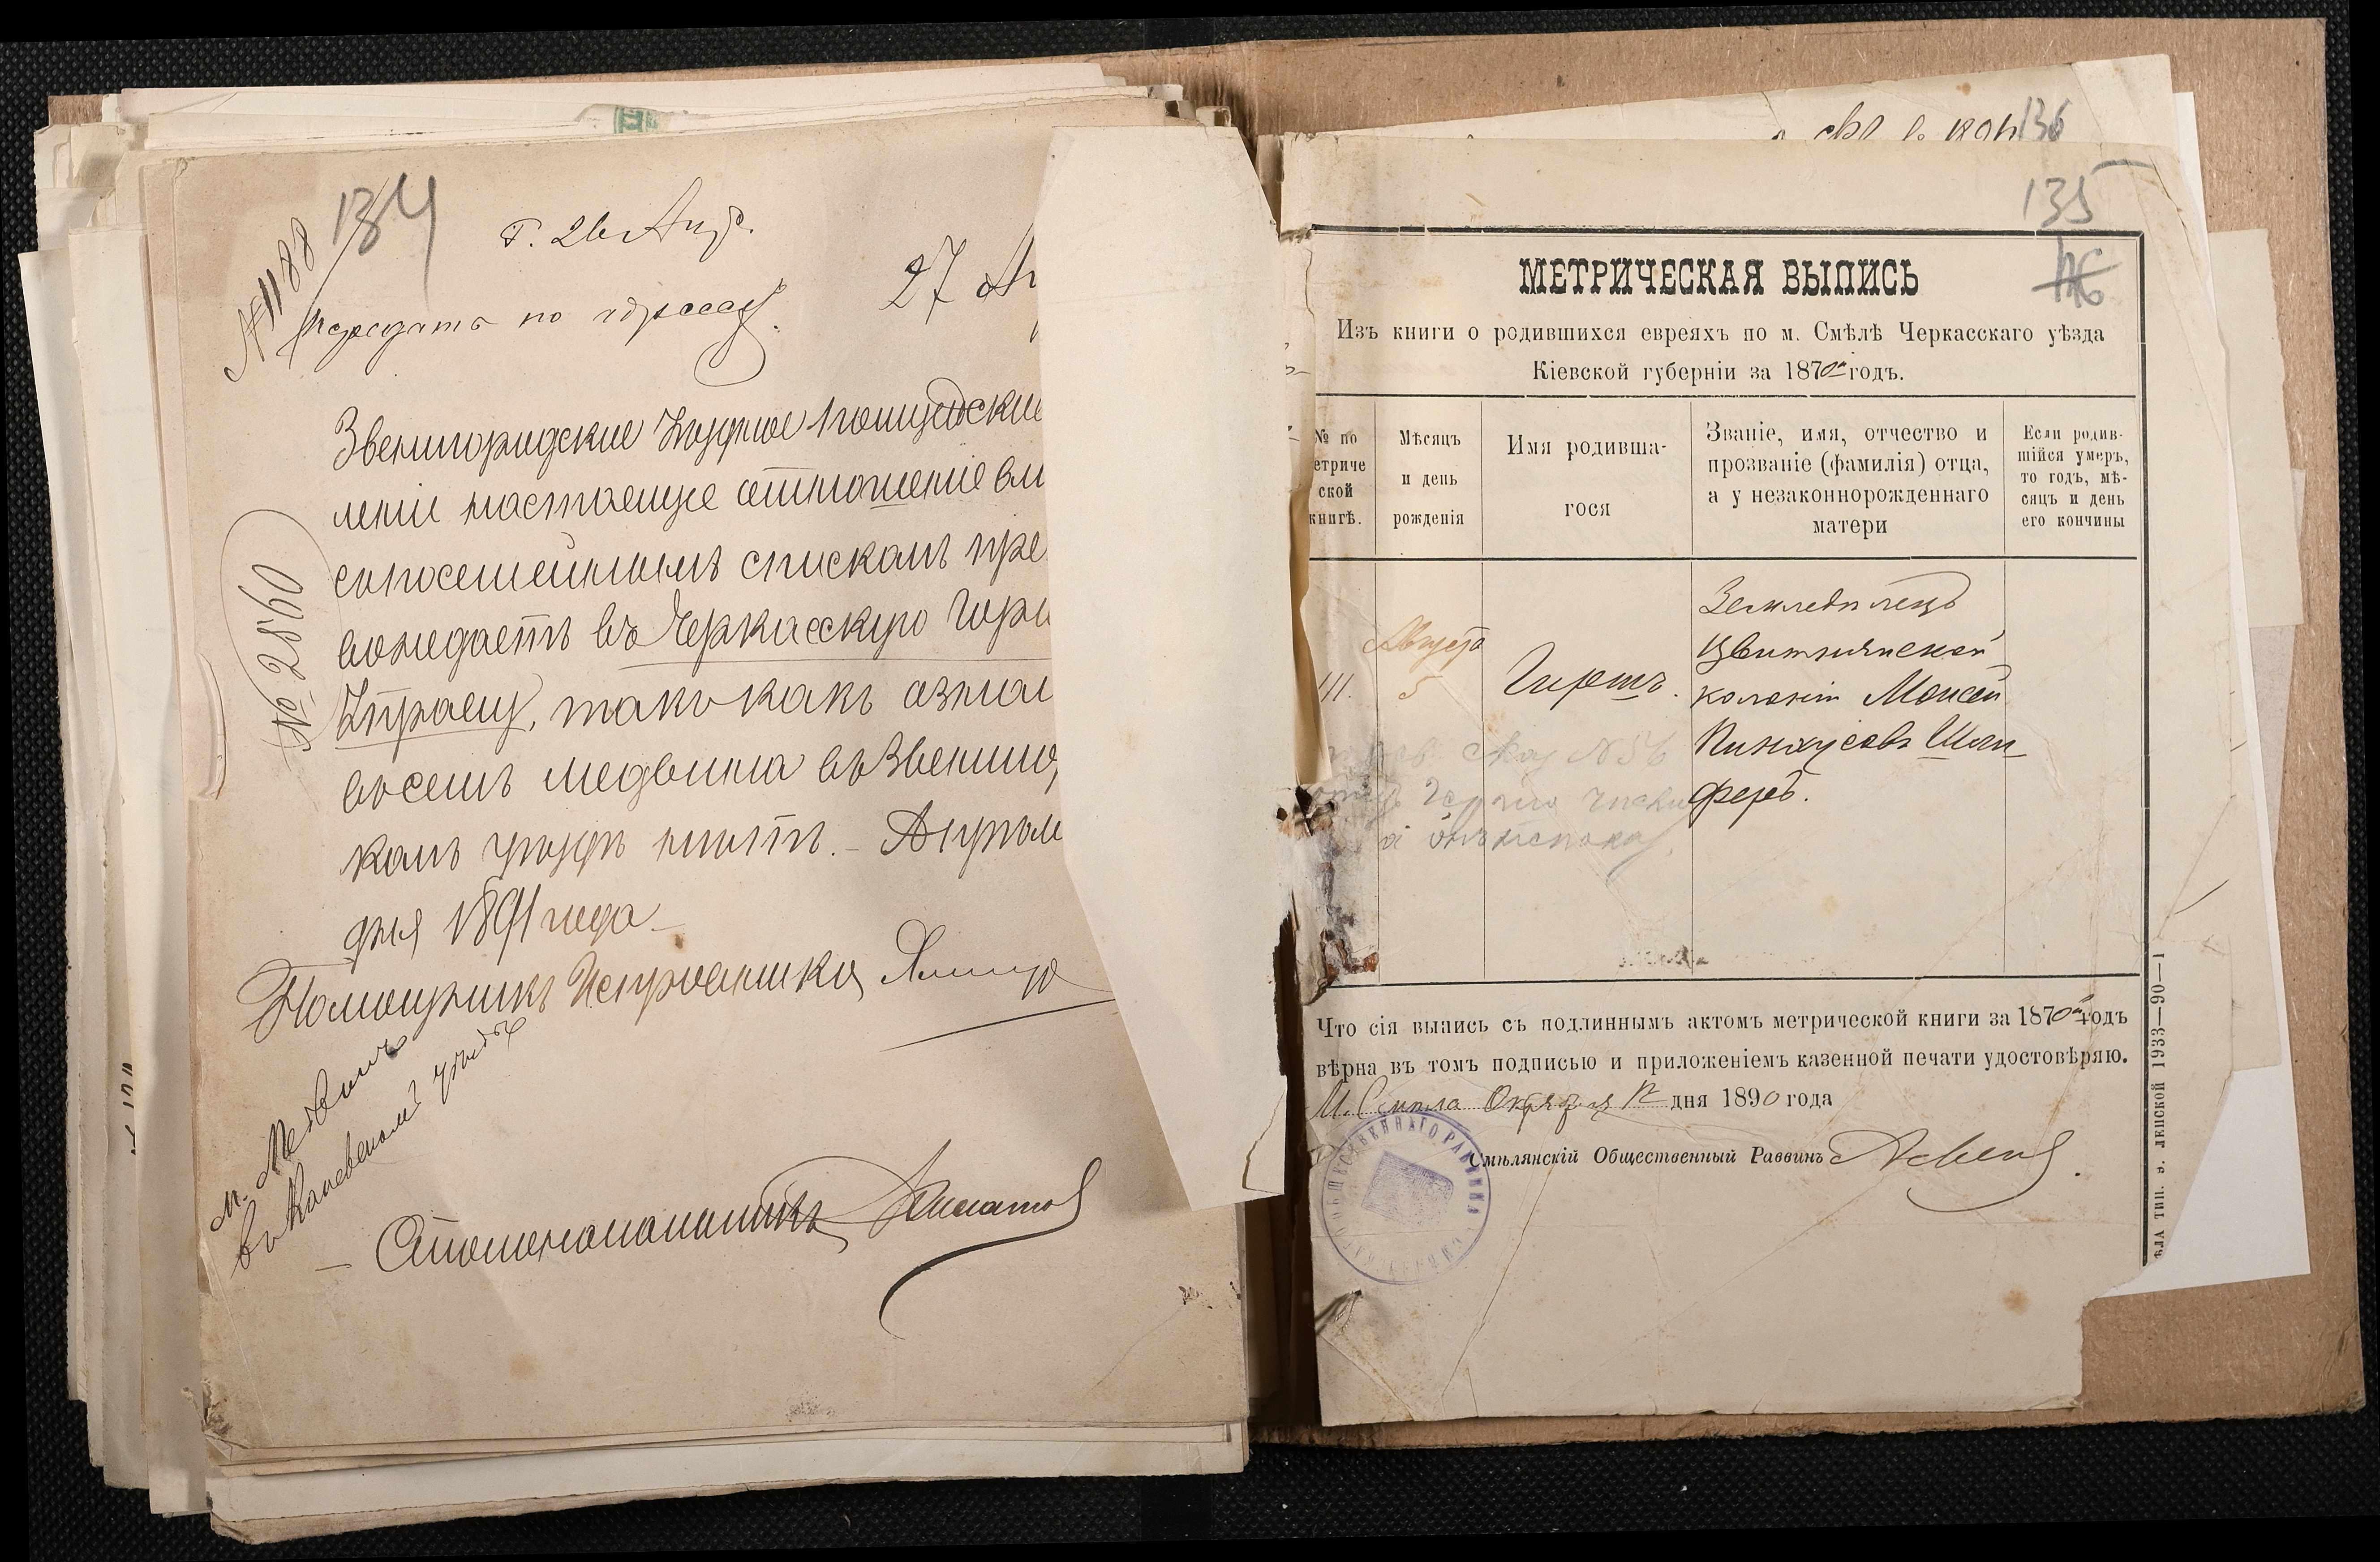 134
№ 1188
Передать по адресу.
27 Ап
№ 2860
Звенигородское Уездное Полицейское
ление настоящее отношение вм
съ посемейнымъ спискомъ пре
вождаетъ въ Черкасскую Горо
Управу, такъ какъ
Медвина въ Звениго
комъ уездѣ нѣтъ. — Апреля
дня 1891 года
Помощникъ Исправника
м. Медвинъ
въ Каневскомъ уездѣ
Столоначальникъ
136
135
МЕТРИЧЕСКАЯ ВЫПИСЬ
Изъ книги о родившихся евреяхъ по м. Смѣлѣ Черкасскаго уѣзда
Кіевской губерніи за 1870й годъ.
№ по
етриче
ской
книгѣ.
Мѣсяцъ
и день
рожденія
Имя родивша-
гося
Званіе, имя, отчество и
прозваніе (фамилія) отца,
а у незаконнорожденнаго
матери
Если родив-
шійся умеръ,
то годъ, мѣ-
сяцъ и день
его кончины
111.
Августа
5
Гиршъ.
Земледѣлецъ
Цвитнянской
колоніи Моисей
Пинхусовъ Шли
феръ.
Что сія выпись съ подлиннымъ актомъ метрической книги за 1870й годъ
вѣрна въ томъ подписью и приложеніемъ казенной печати удостовѣряю.
М. Смѣла Октября 12 дня 1890 года
Смѣлянскій Общественный Раввинъ
ѢЛА ТИП. в. ЛЕПСКОЙ 1933—90—1